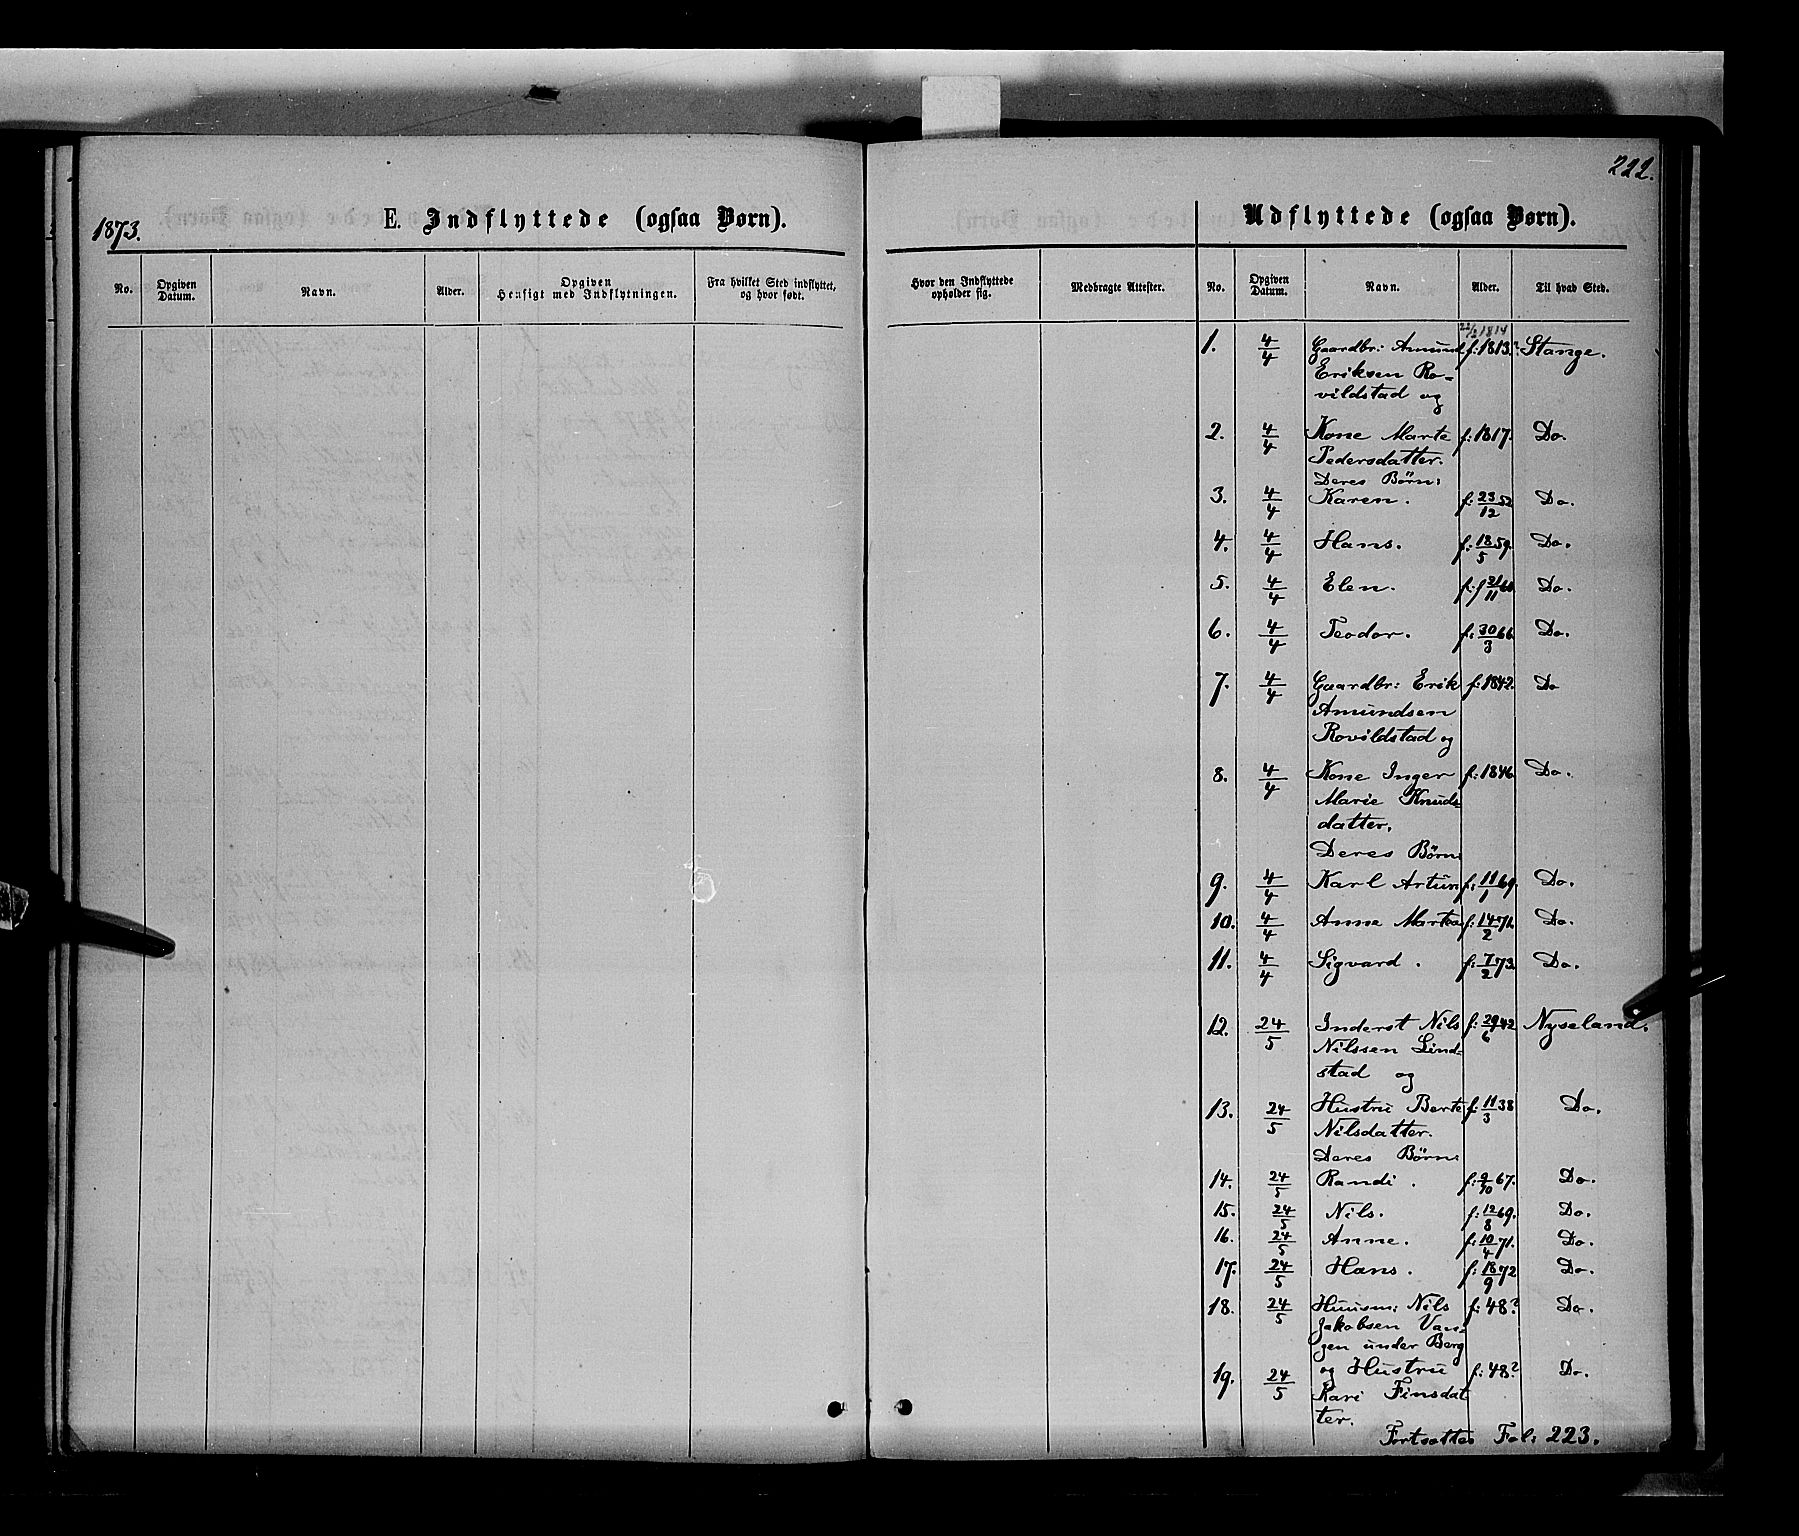 222.
1873.
E. Indflyttede (ogsaa Børn).
Udflyttede (ogsaa Børn).
No. Opgiven Datum. Navn. Alder. Opgiven Hensigt med Indflytningen. Fra hvilket Sted indflyttet, og hvor født. Hvor den Indflyttede opholder sig. Medbragte Attester. No. Opgiven Datum. Navn. Alder. Til hvad Sted.
22/2 1814
1. 4/4 Gaardbr: Amund f: 1813? Stange.
Eriksen Ro-
vildstad og
2. 4/4 Kone Marte f: 1817. Do.
Pedersdatter.
Deres Børn:
3. 4/4 Karen. f: 23/12 52 Do.
4. 4/4 Hans. f: 18/5 59. Do.
5. 4/4 Elen. f: 21/11 60 Do.
6. 4/4 Teodor. f: 30/3 66. Do.
7. 4/4 Gaardbr: Erik f: 1842. Do
Amundsen
Rovildstad og
8. 4/4 Kone Inger f: 1846 Do.
Marie Knuds-
datter.
Deres Børn:
9. 4/4 Karl Artur f: 11/1 69. Do.
10. 4/4 Anne Martea f: 14/2 71. Do.
11. 4/4 Sigvard. f: 7/2 73. Do.
12. 24/5 Inderst Nils f: 29/6 42 Nyseland.
Nilssen Lind-
stad og
13. 24/5 Hustru Berte f: 11/3 38 Do.
Nilsdatter.
Deres Børn:
14. 24/5 Randi. f: 9/10 67. Do.
15. 24/5 Nils. f: 12/8 69. Do.
16. 24/5 Anne. f: 10/4 71. Do.
17. 24/5 Hans. f: 18/9 72 Do.
18. 24/5 Huusm: Nils f: 48? Do.
Jakobsen Van-
gen under Berg
19. 24/5 og Hustru f: 48? Do.
Kari Finsdat
ter.
Fortsættes Fol: 223.